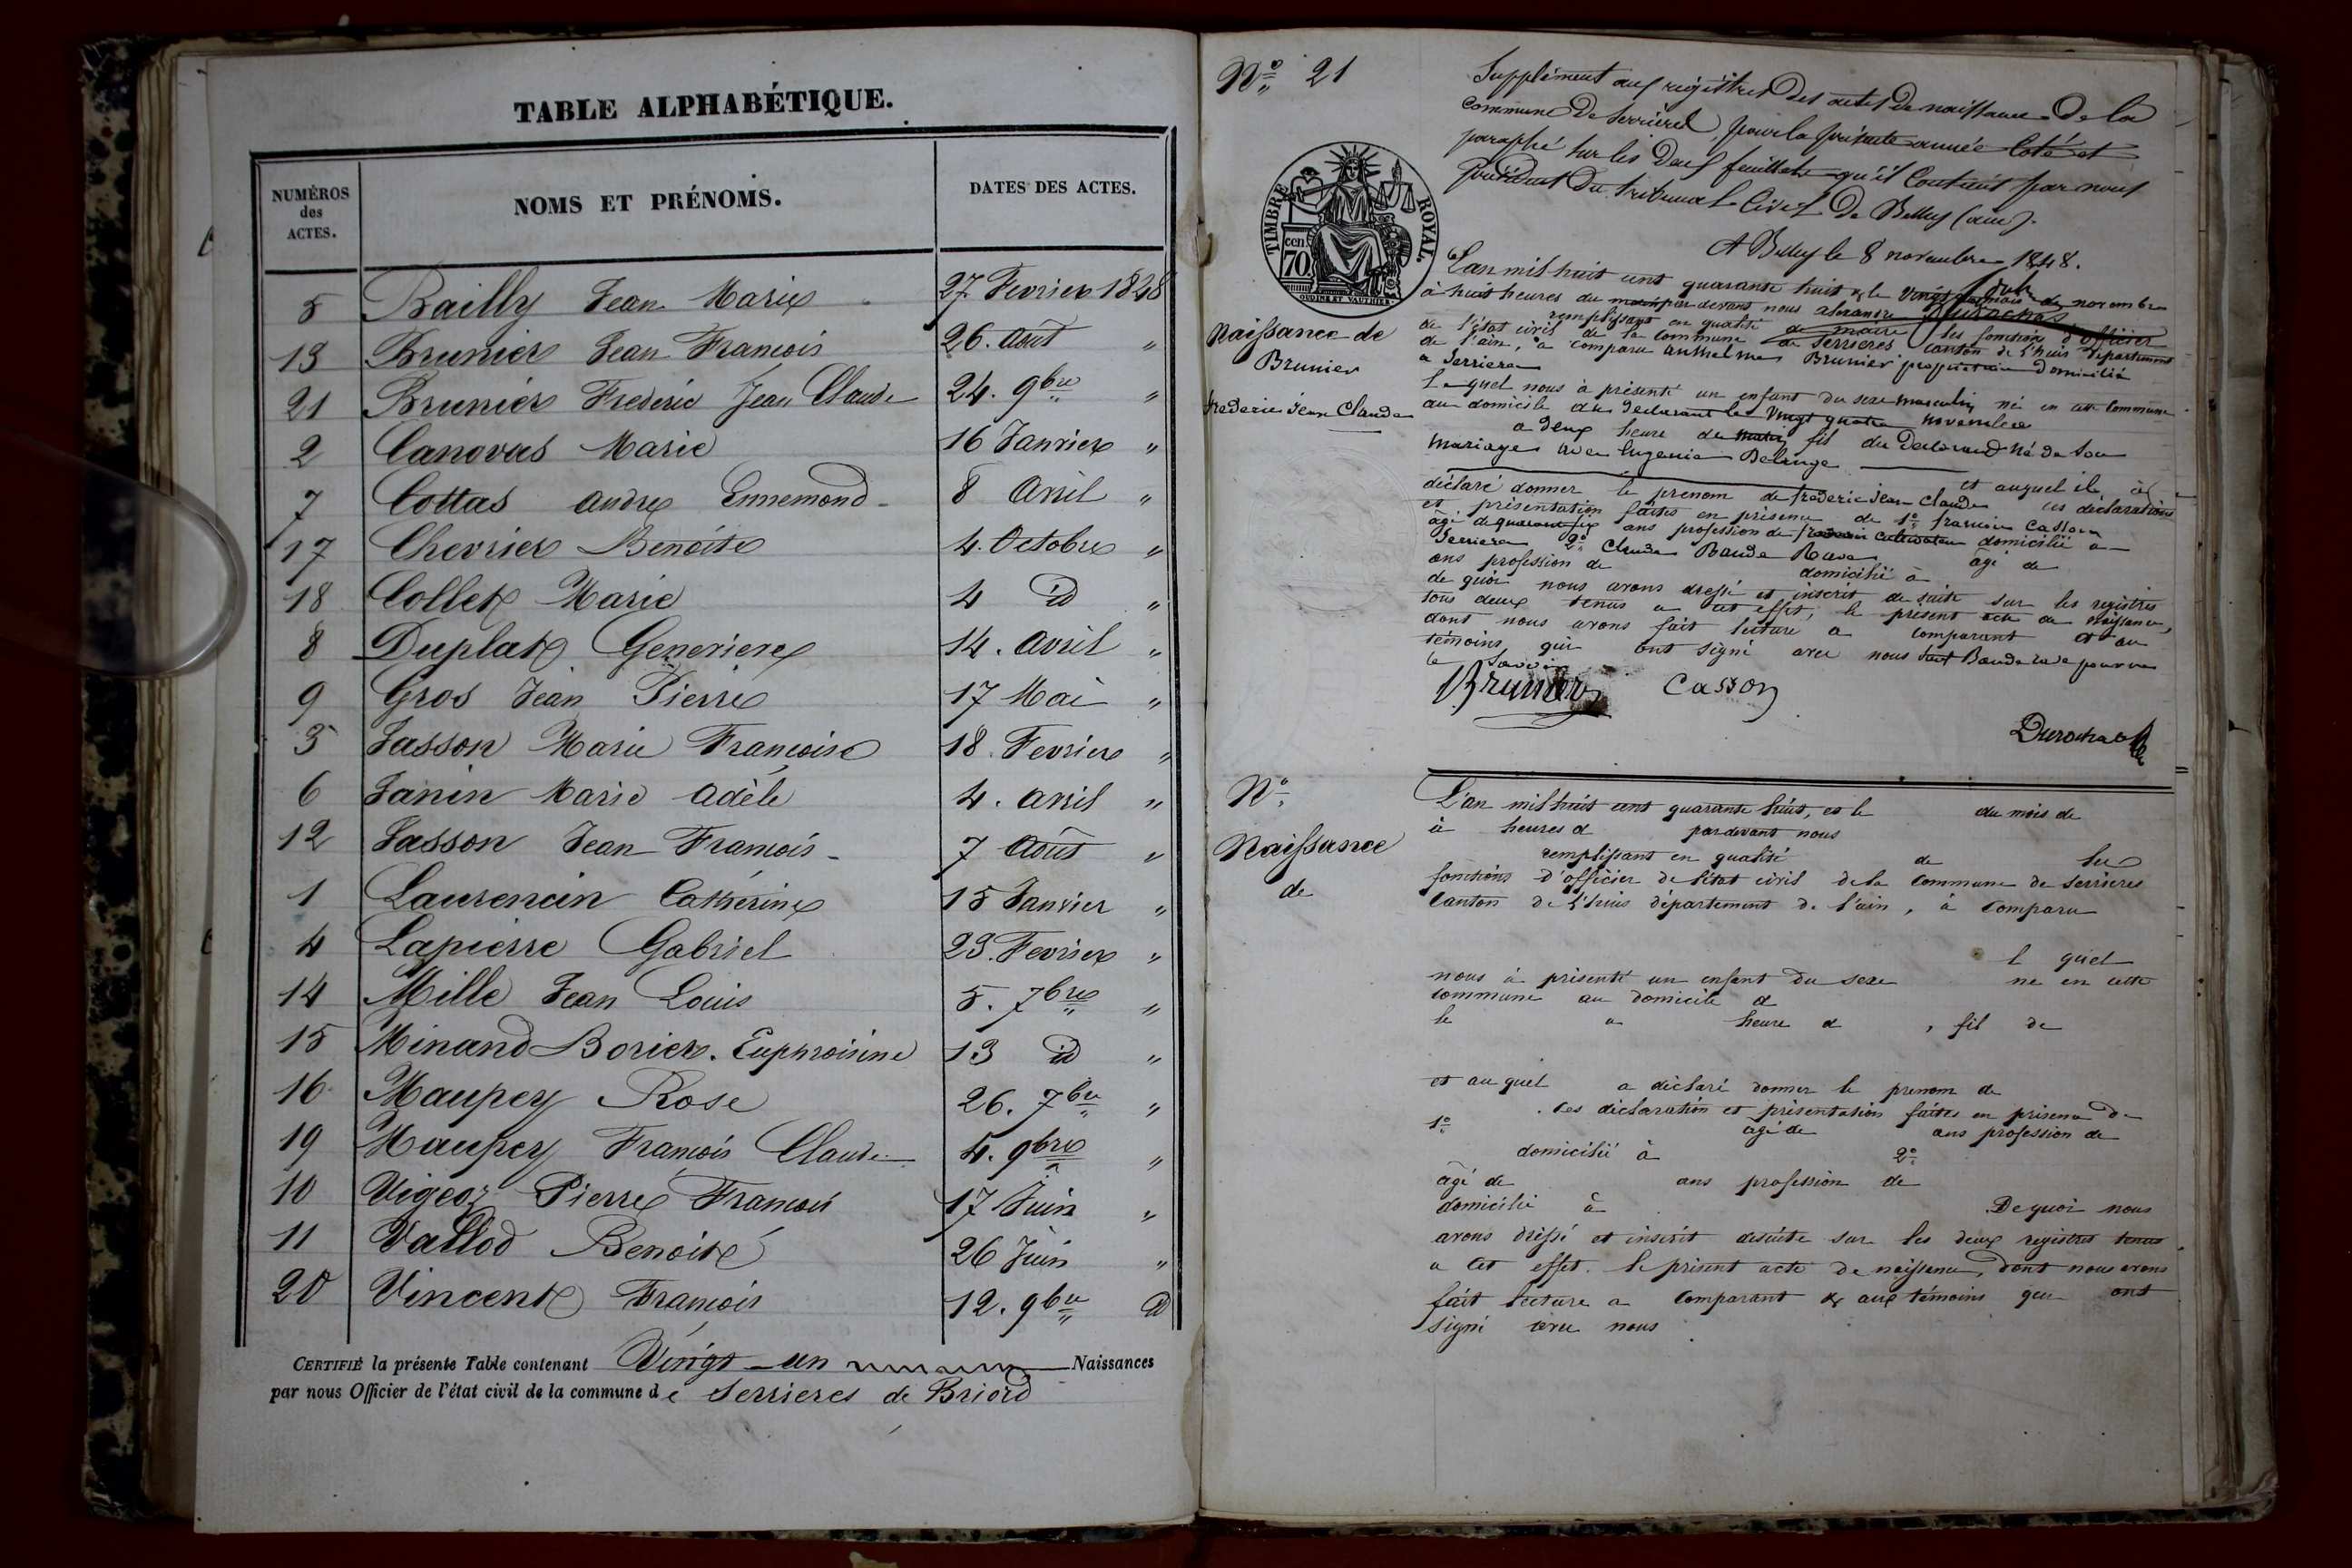 TABLE ALPHABÉTIQUE.
NUMÉROS des ACTES. NOMS ET PRÉNOMS. DATES DES ACTES.
5 Bailly Jean Marie 27 Fevrier 1848
13 Brunier Jean François 26. Août "
21 Brunier Frederic Jean Claude 24. 9bre "
2 Canovas Marie 16 Janvier "
7 Cottas andré Ennemond 8 Avril "
17 Chevrier Benoite 4. Octobre "
18 Collet Marie 4 id "
8 Duplat Genevieve 14. avril "
9 Gros Jean Pierre 17 Mai "
3 Jasson Marie Françoise 18. Fevrier "
6 Janin Marie adèle 4. avril "
12 Jasson Jean François 7 Août "
1 Laurencin Catherine 15 Janvier "
4 Lapierre Gabriel 23. Fevrier "
14 Mille Jean Louis 5. 7bre "
15 Minand Borier. Euphroisine 13 id "
16 Maupey Rose 26. 7bre "
19 Maupey François Claude 4. 9bre "
10 Vigeoz Pierre François 17 Juin "
11 Vallod Benoite 26 Juin "
20 Vincent François 12. 9bre id
CERTIFIÉ la présente Table contenant Vingt-un Naissances
par nous Officier de l'état civil de la commune de Serrieres de Briord
N° 21
Supplément aux registres des actes de naissance de la
commune de Serrieres pour la présente année Coté et
paraphé sur les deux feuillets qu'il Contient par nous
Président du tribunal Civil de Belley (ain).
A Belley le 8 novembre 1848.
TIMBRE ROYAL.
cen. 70
OUDINE ET VAUTHIER
Naissance de
Brunier
frederic Jean Claude
L'an mil huit cent quarante huit & le Vingt quatre du mois de novembre
à huit heures du matin par devant nous
remplissant en qualité de maire les fonctions d'officier
de l'état civil de la commune de Serrieres canton de l'huis département
de l'ain, à comparu anthelme Brunier propriétaire domicilié
a Serrieres
Lequel nous à présenté un enfant du sexe masculin né en cette commune
au domicile du declarant le Vingt quatre novembre
a deux heure du matin fil du declarand né de son
mariage avec Eugenie
et auquel il à
déclaré donner le prenom de frederic Jean Claude ces déclarations
et présentation faites en présence de 1° françois Casson
âgé de quarant six ans profession de cultivateur domicilié a
Serrieres 2° Claude Baude Rave âgé de
ans profession de domicilié à
de quoi nous avons dressé et inscrit de suite sur les registres
tous deux tenus a cet effet, le présent acte de naissance,
dont nous avons fait lecture a comparant et au
témoins qui ont signé avec nous sauf Baude rave pour ne
le savoir
Brunier Casson
N°
Naissance
de
L'an mil huit cent quarante huit, et le du mois de
à heures d pardevant nous
remplissant en qualité de les
fonctions d'officier de l'état civil de la Commune de Serrieres
Canton de l'huis département de l'ain, à Comparu
l quel
nous à présenté un enfant du sexe ne en cette
commune au domicile d
le a heure d , fil de
et au quel a déclaré donner le prenom de
. Ces déclaration et présentation faites en présence de
1° âgé de ans profession de
domicilié à 2°
âgé de ans profession de
domicilié à De quoi nous
avons dréssé et inscrit desuite sur les deux registres tenus
a Cet effet. le présent acte de naissance, dont nous avons
fait lecture a Comparant & aux témoins qui ont
signé avec nous